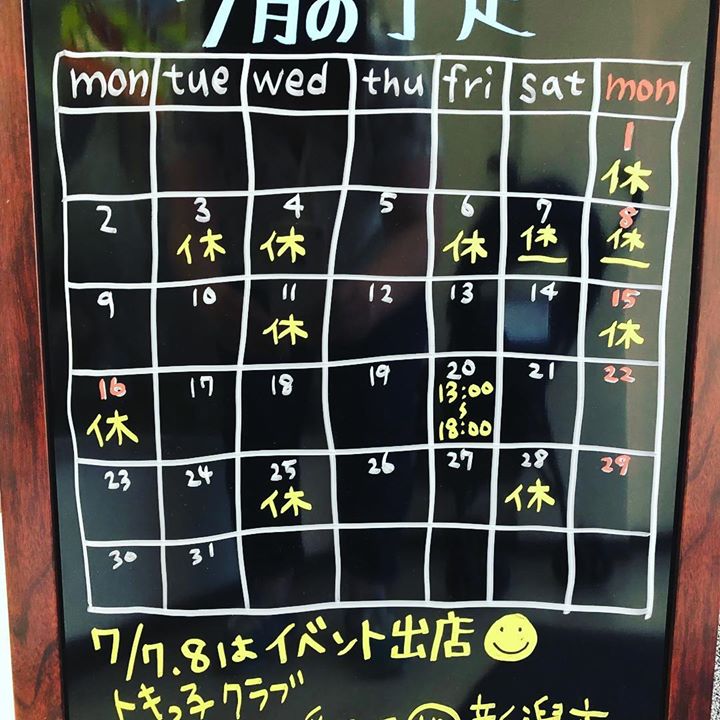 7月の予定
mon tue wed thu fri sat mon
1
休
2 3 4 5 6 7 8
休 休 休 休 休
9 10 11 12 13 14 15
休 休
16 17 18 19 20 21 22
休 13:00
~
18:00
23 24 25 26 27 28 29
休 休
30 31
7/7.8はイベント出店
トキっ子クラブ
新潟市